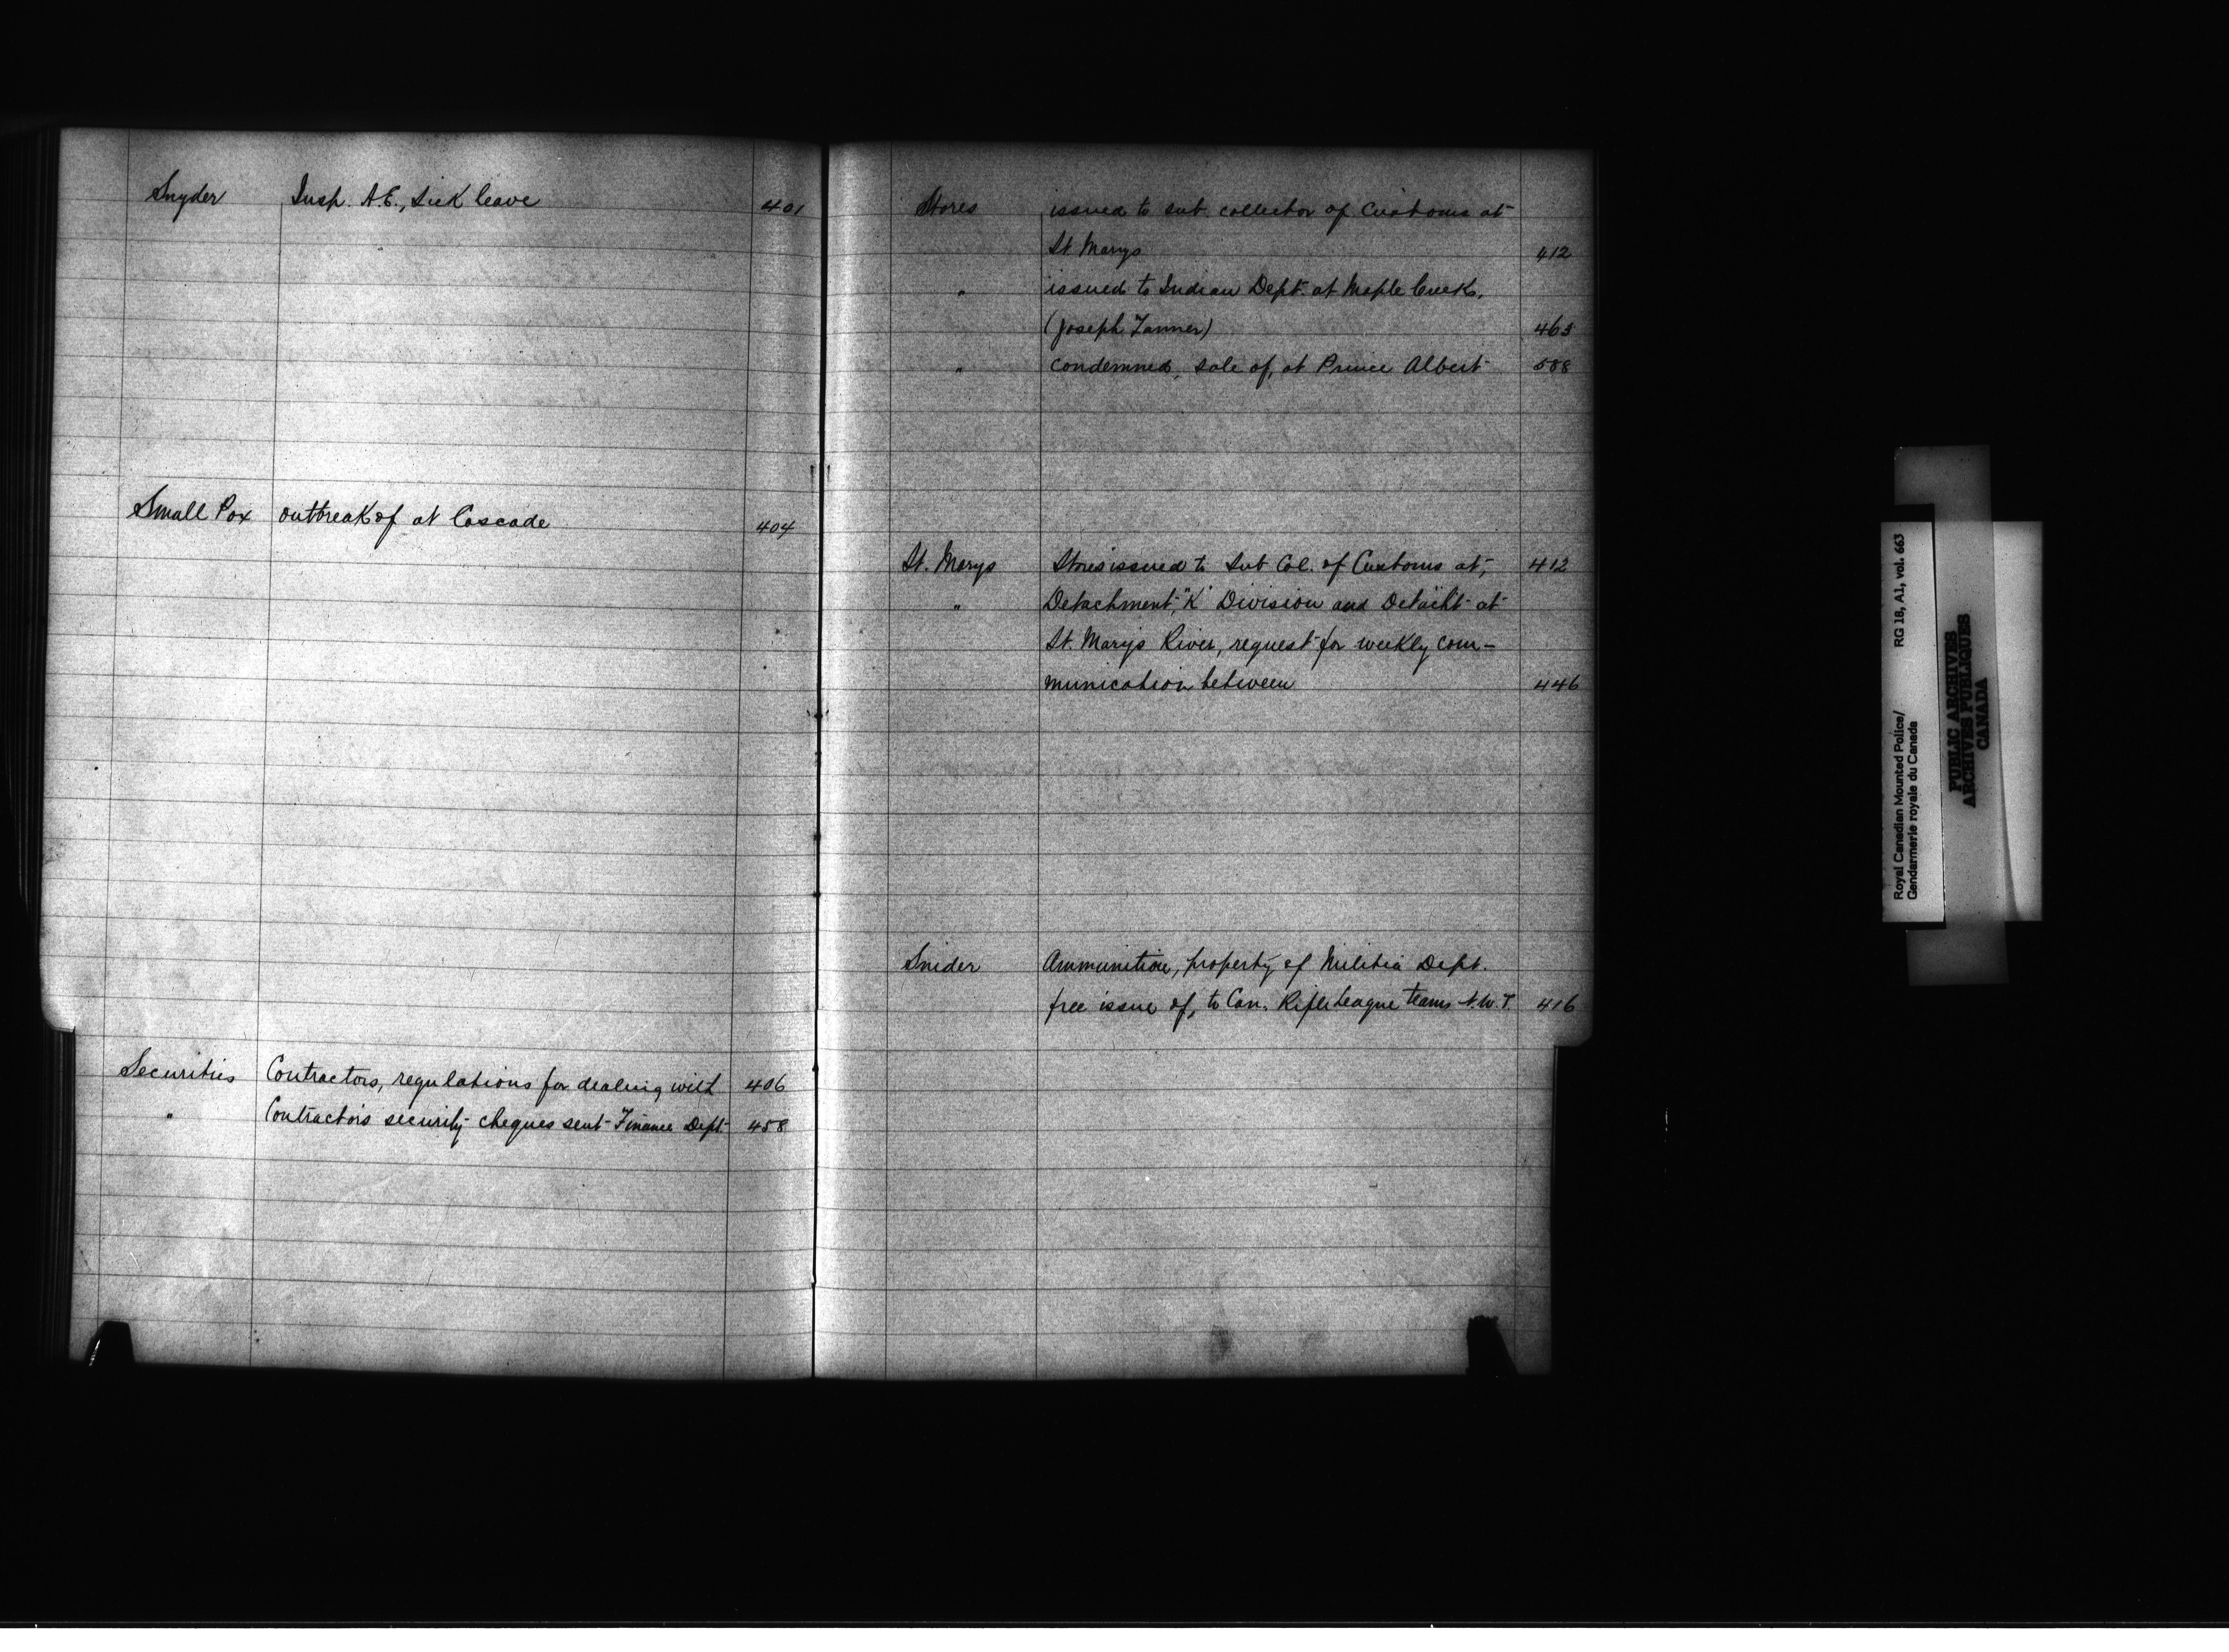 Snyder Insp. A.E., Sick leave 401
Small Pox outbreak of at Cascade 404
Securities Contractors, regulations for dealing with 406
" Contractors security cheques sent Finance Dept. 458
Stores issued to sub. collector of Customs at
St Marys 412
" issued to Indian Dept. at Maple Creek,
(Joseph Tanner) 463
" condemned, sale of, at Prince Albert 588
St. Marys Stores issued to Sub Col. of Customs at, 412
" Detachment, "K" Division and Detacht at
St. Marys River, request for weekly com-
munication between 446
Snider Ammunition, property of Militia Dept.
free issue of, to Can. Rifle League teams N.W.T. 416
Royal Canadian Mounted Police/ RG 18, A1, vol. 663
Gendarmerie royale du Canada
PUBLIC ARCHIVES
ARCHIVES PUBLIQUES
CANADA